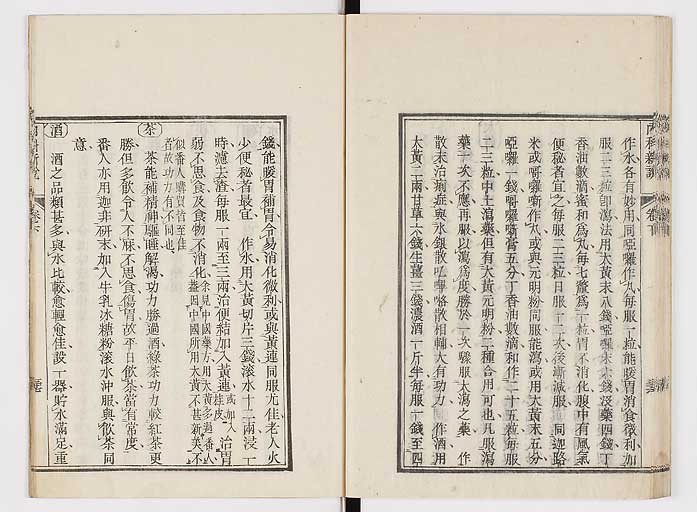 內科新說
卷下
作水各有妙用同啞囉作丸每服一粒能暖胃消食微利加
服二三粒卽瀉法用大黃末八錢啞囉末末錢沒藥四錢丁
香油數滴蜜和爲丸每七釐爲一粒胃不消化腹中有風氣
便秘者宜之每服二三粒日服一二次後漸減服
米或
丸或與元明粉同服能瀉或用大黃末五分
啞囉一錢
膏五分丁香油數滴和作二十五粒每服
二三粒中土瀉藥但有大黃元明粉二種合用可也凡服瀉
藥一次不應再服以瀉爲度勝於一次驟服太瀉之藥　作
散末治痢症與水銀散
散相輔大有功力　作酒用
大黃二兩甘草六錢生薑三錢濃酒一斤半每服一錢至四
錢能暖胃補胃令易消化微利或與黃連同服尤佳老人火
少便秘者最宜　作水用大黃切片三錢滾水十二兩浸一
時濾去渣每服一兩至三兩治便結加入黃連或加入桂皮治胃
弱不思食及食物不消化余見中國藥方用大黃多過番人蓋因中國所用大黃不甚新美不
似番人購買皆至佳
者故功力有不同也
茶
茶能補精神驅睡解渴功力勝過酒綠茶功力較紅茶更
勝但多飲令人不寐不思食傷胃故平日飲茶當有常度
番人亦用迦非研末加入牛乳冰糖粉滾水沖服與飲茶同
意
酒
酒之品類甚多與水比較愈輕愈佳設一器貯水滿足重